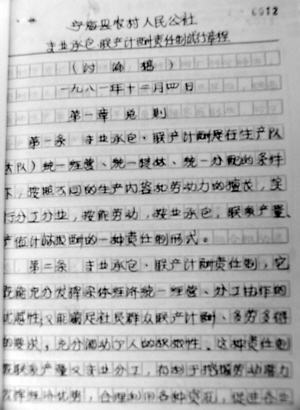 0012
宁 县农村人民公社
专业承包 联产计酬责任制试行章程
(讨论稿)
一九八一年十二月四日
第一章 总则
第一条 专业承包、联产计酬是在生产队
(大队)统一经营、统一核算、统一分配的条件
下,按照不同的生产内容和劳动力的擅长,实
行分工分业,按能劳动,按业承包,联系产量、
产值计酬的一种责任制形式。
第二条 专业承包、联产计酬责任制,它
既能充分发挥集体经济统一经营、分工协作的
优越性,又能满足社员群众联产计酬、多劳多得
的要求,充分调动了人的积极性。这种责任制
既联系产量又专业分工,有利于挖掘劳动潜力
发挥经济优势,合理利用各种资源,促进各业